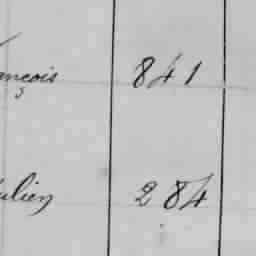 ançois 841
ulien 284